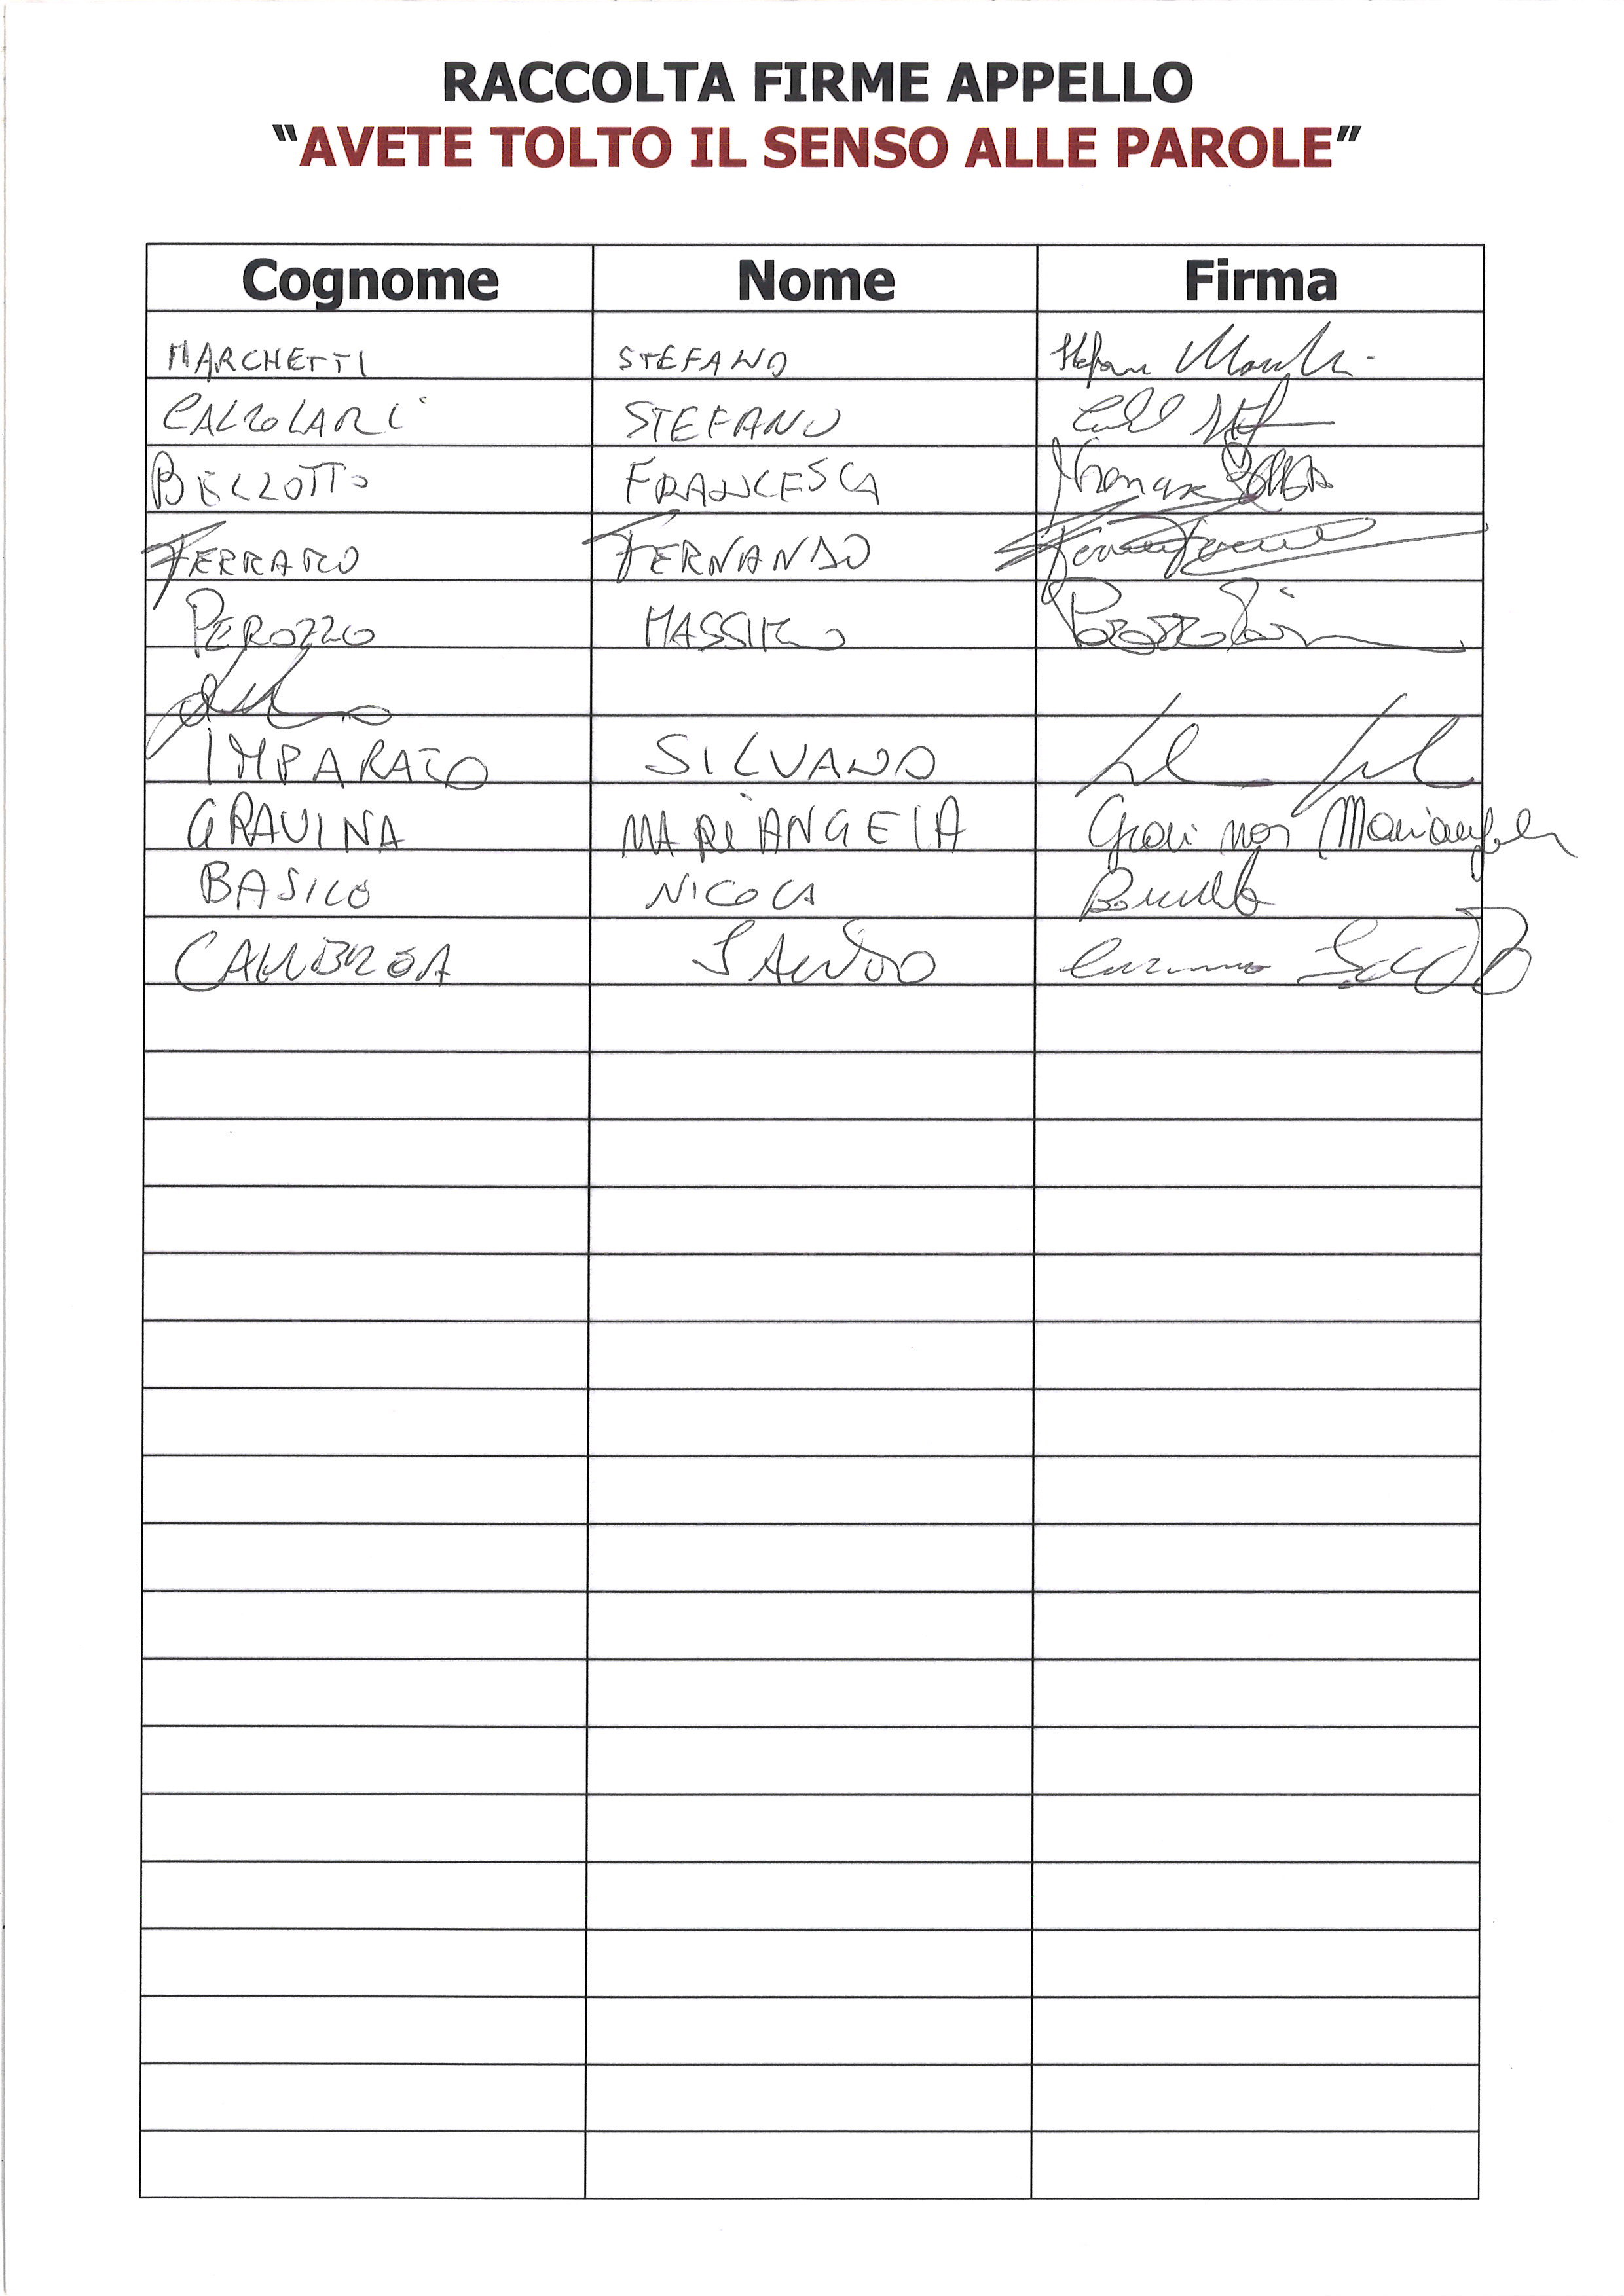 RACCOLTA FIRME APPELLO
“AVETE TOLTO IL SENSO ALLE PAROLE”
Cognome Nome Firma
MARCHETTI STEFANO Stefano
CALZOLARI STEFANO
BELLOTTO FRANCESCA
FERRARO FERNANDO
PEROZZO MASSIMO Perozzo
IMPARATO SILVANO
GRAVINA MARIANGELA Gravina Mariangela
BASILO NICOLA
SANDRO